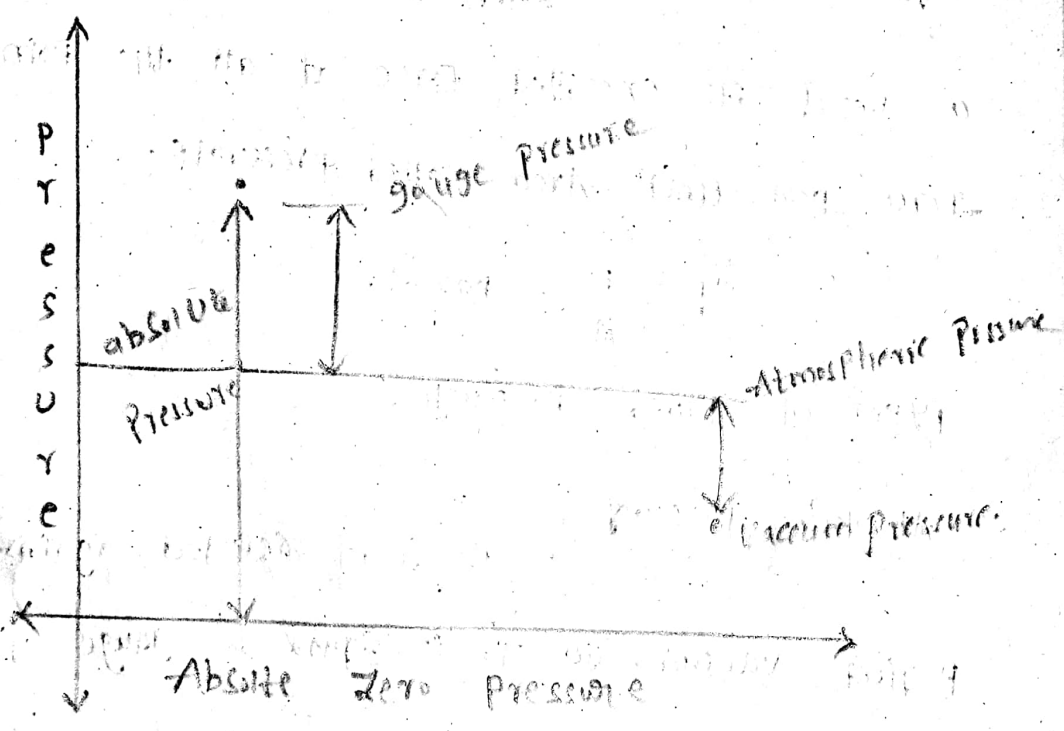 Pressure
gauge Pressure
absolute
Pressure
Atmospheric Pressure
Vaccum Pressure.
Absolte Zero Pressure